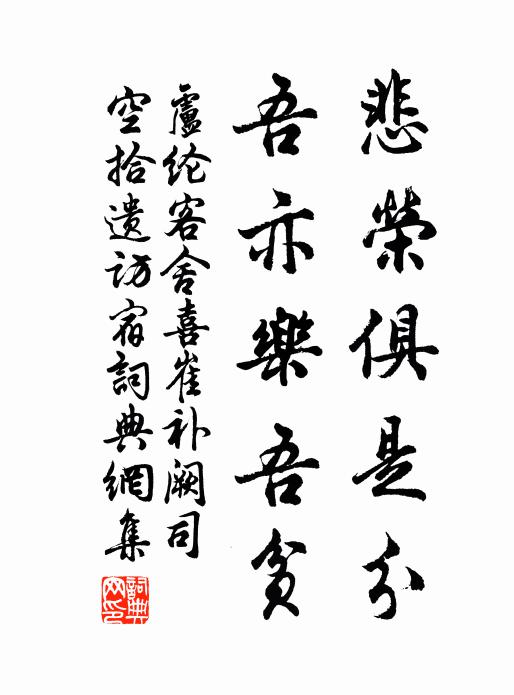 悲榮俱是分
吾亦樂吾貧
盧纶客舍喜崔补阙司
空拾遗访宿詞典網集
詞典网印